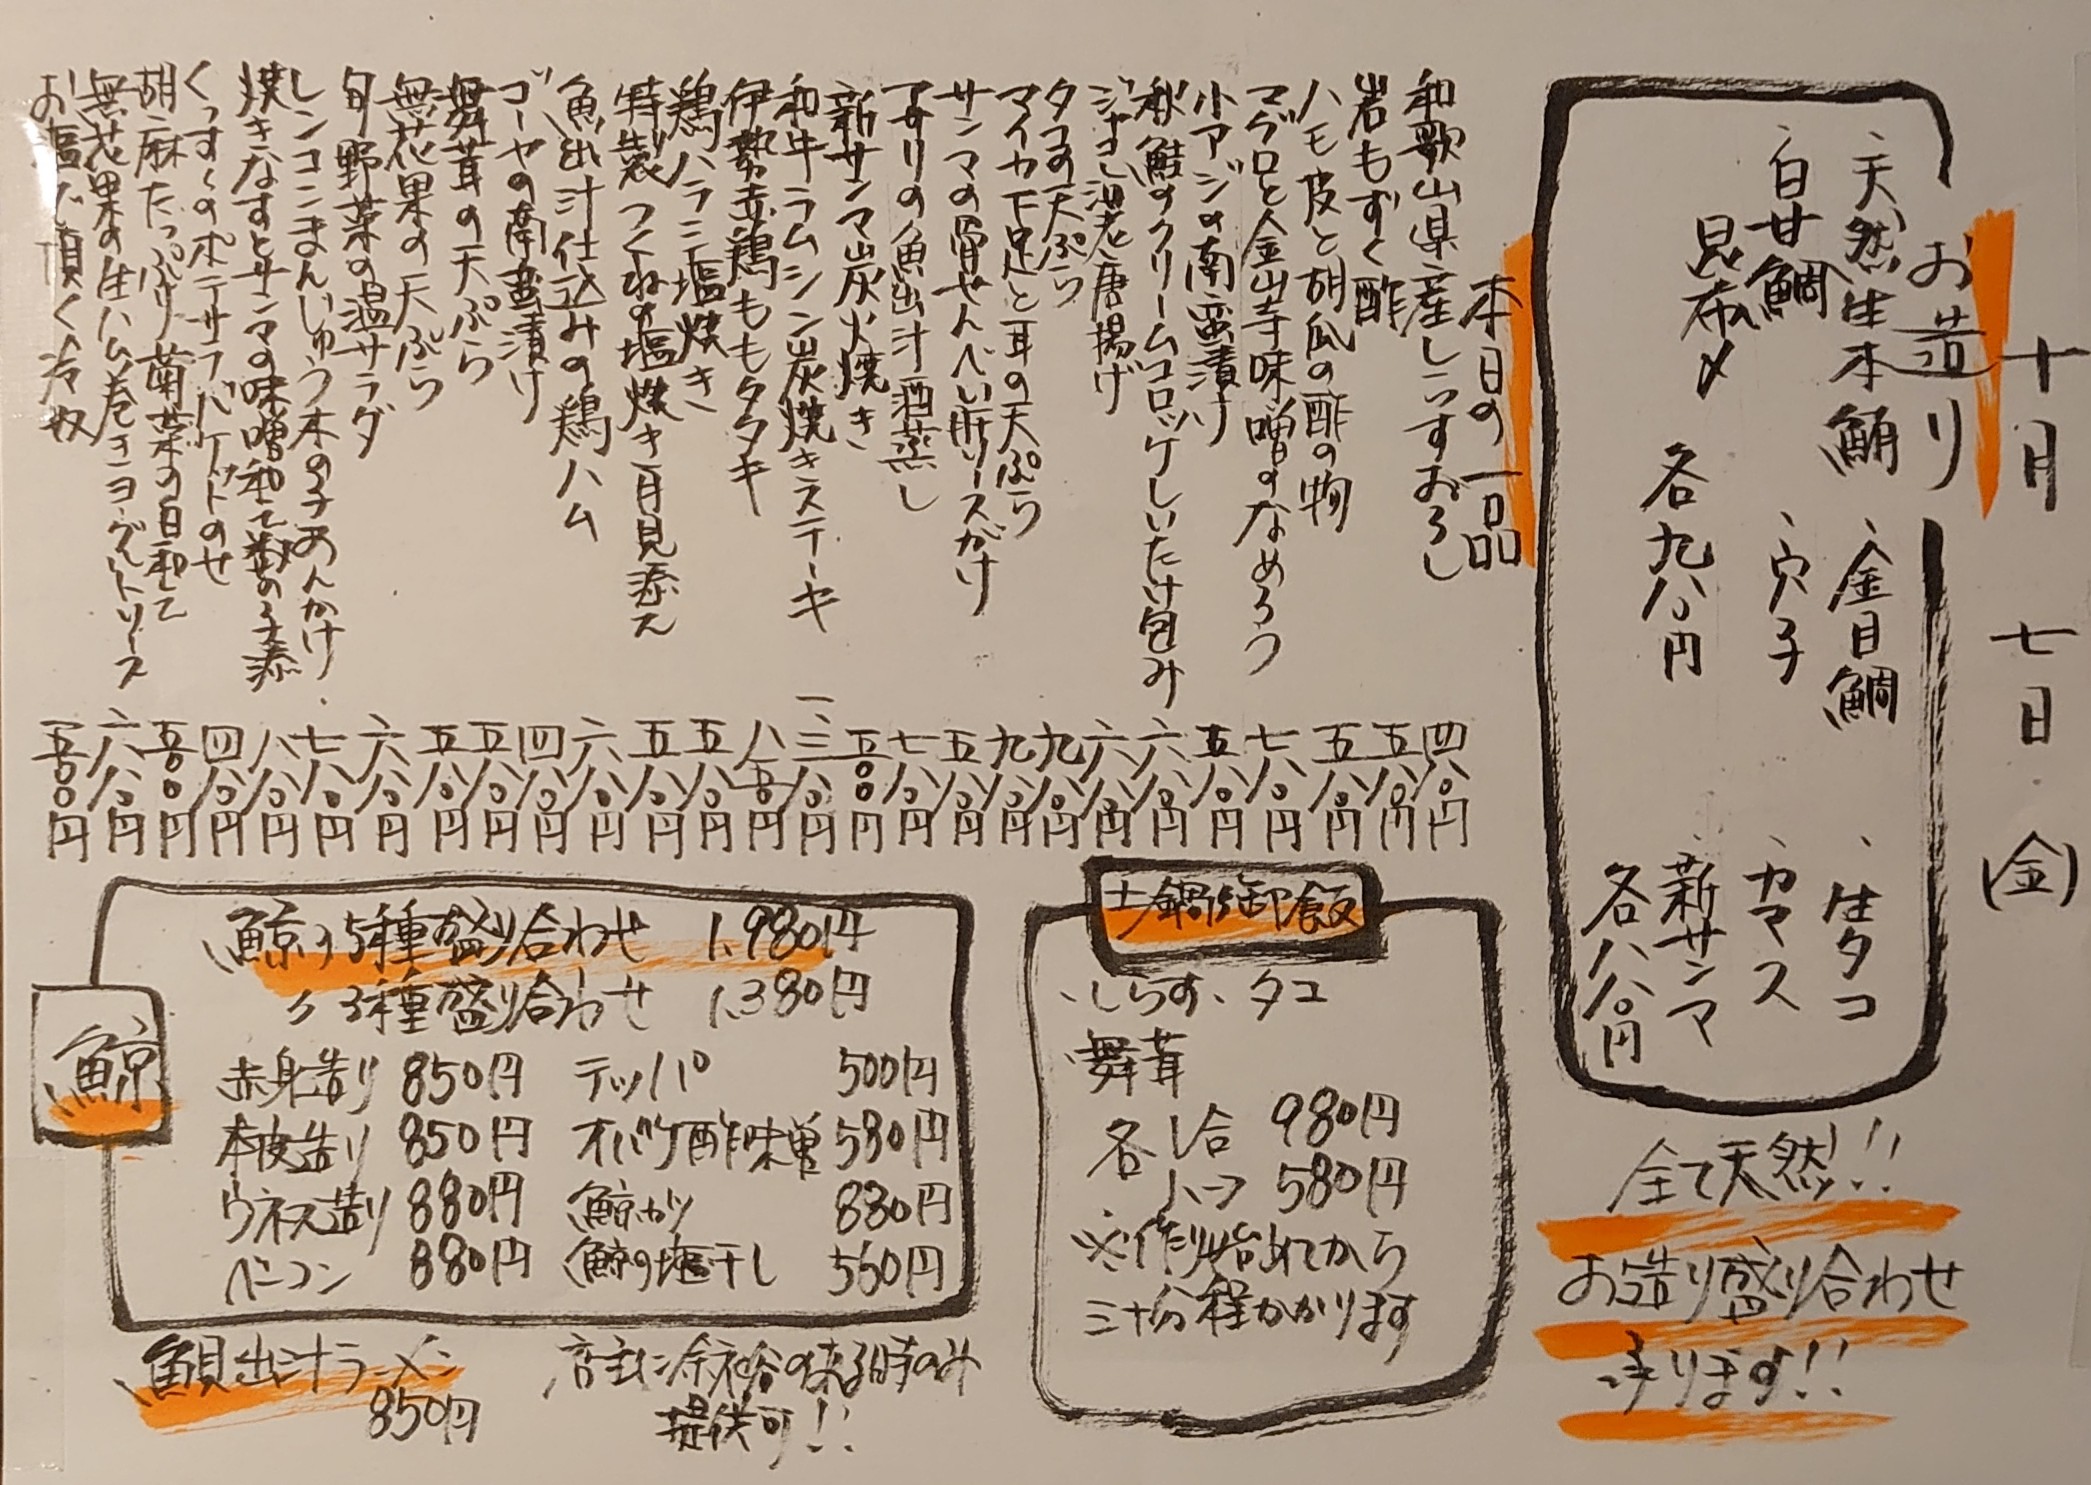 十月七日(金)
お造り
、天然生本鮪 、金目鯛 、生タコ
、白甘鯛 、穴子 、カマス
昆布〆 、新サンマ
各九八〇円 各八八〇円
全て天然!!
お造り盛り合わせ
承ります!!
本日の一品
和歌山県産しらすおろし 四八〇円
岩もずく酢 五八〇円
ハモ皮と胡瓜の酢の物 五八〇円
マグロと金山寺味噌のなめろう 七八〇円
小アジの南蛮漬け 五八〇円
秋鮭のクリームコロッケしいたけ包み 六八〇円
海老唐揚げ 六八〇円
タコの天ぷら 九八〇円
マイカ下足と耳の天ぷら 九八〇円
サンマの骨せんべい肝ソースがけ 五八〇円
アサリの魚出汁酒蒸し 七八〇円
新サンマ炭火焼き 五〇〇円
和牛ラムシン炭焼きステーキ 一、三八〇円
伊勢赤鶏ももタタキ 八五〇円
鶏ハラミ塩焼き 五八〇円
特製つくねの塩焼き 月見添え 五八〇円
魚出汁仕込みの鶏ハム 六八〇円
ゴーヤの南蛮漬け 四八〇円
舞茸の天ぷら 五八〇円
無花果の天ぷら 五八〇円
旬野菜の温サラダ 六八〇円
レンコンまんじゅう木の子あんかけ 七八〇円
焼きなすとサンマの味噌和え 八八〇円
くっすくのポテサラ バケットのせ 四八〇円
胡麻たっぷり菊菜の白和え 五〇〇円
無花果の生ハム巻きヨーグルトソース 六八〇円
お塩で頂く冷奴 五〇〇円
土鍋御飯
、しらす、タコ
、舞茸
各 1合 980円
ハーフ 580円
※作り始めてから
三十分程かかります
鯨
鯨の5種盛り合わせ 1,980円
〃 3種盛り合わせ 1,380円
赤身造り 850円 テッパ 500円
本皮造り 850円 オバケ酢味噌 580円
ウネス造り 880円 鯨カツ 880円
ベーコン 880円 鯨の塩干し 550円
魚貝出汁ラーメン
850円
店主に余裕の来る時のみ
提供可!!